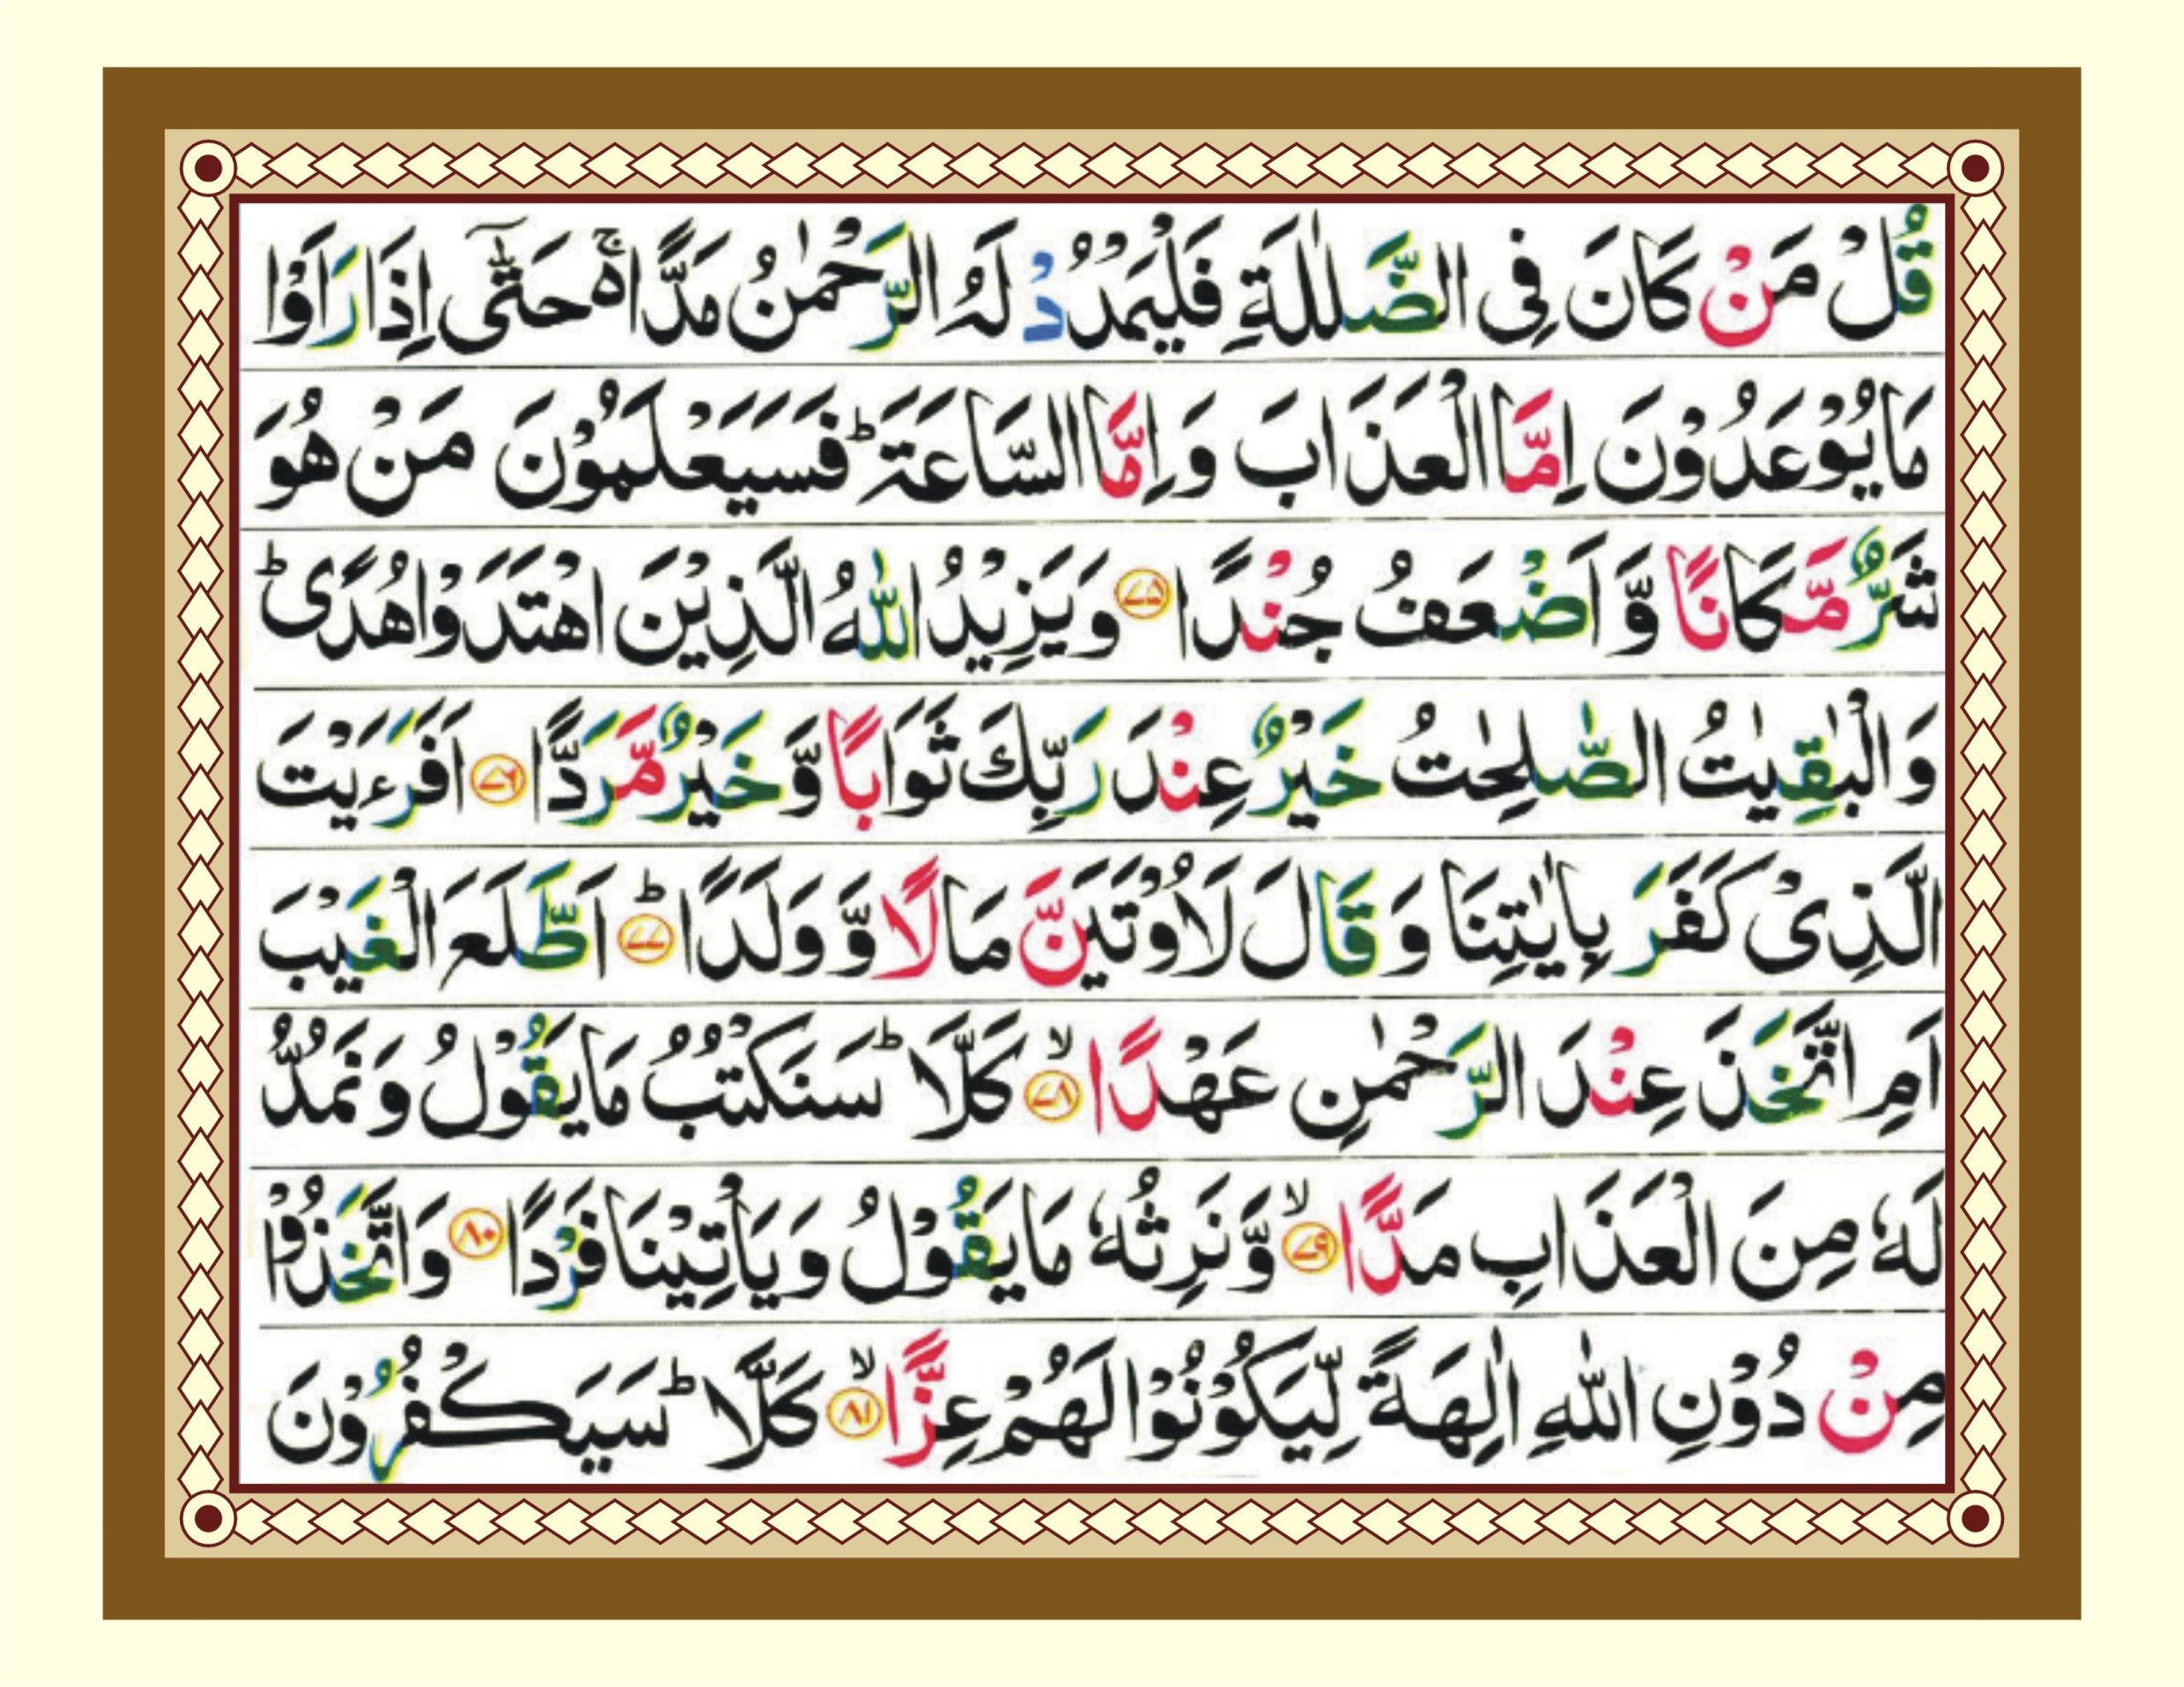 قُلْ مَنْ كَانَ فِى الضَّلٰلَةِ فَلْيَمْدُدْ لَهُ الرَّحْمٰنُ مَدًّا ۚ۬ حَتّٰٓى اِذَا رَاَوْا
مَا يُوْعَدُوْنَ اِمَّا الْعَذَابَ وَ اِمَّا السَّاعَةَ ؕ فَسَيَعْلَمُوْنَ مَنْ هُوَ
شَرٌّ مَّكَانًا وَّ اَضْعَفُ جُنْدًا ﴿۷۵﴾ وَ يَزِيْدُ اللّٰهُ الَّذِيْنَ اهْتَدَوْا هُدًى ؕ
وَ الْبٰقِيٰتُ الصّٰلِحٰتُ خَيْرٌ عِنْدَ رَبِّكَ ثَوَابًا وَّ خَيْرٌ مَّرَدًّا ﴿۷۶﴾ اَفَرَءَيْتَ
الَّذِىْ كَفَرَ بِاٰيٰتِنَا وَ قَالَ لَاُوْتَيَنَّ مَالًا وَّ وَلَدًا ؕ﴿۷۷﴾ اَطَّلَعَ الْغَيْبَ
اَمِ اتَّخَذَ عِنْدَ الرَّحْمٰنِ عَهْدًا ۙ﴿۷۸﴾ كَلَّا ؕ سَنَكْتُبُ مَا يَقُوْلُ وَ نَمُدُّ
لَهٗ مِنَ الْعَذَابِ مَدًّا ۙ﴿۷۹﴾ وَّ نَرِثُهٗ مَا يَقُوْلُ وَ يَاْتِيْنَا فَرْدًا ﴿۸۰﴾ وَ اتَّخَذُوْا
مِنْ دُوْنِ اللّٰهِ اٰلِهَةً لِّيَكُوْنُوْا لَهُمْ عِزًّا ۙ﴿۸۱﴾ كَلَّا ؕ سَيَكْفُرُوْنَ